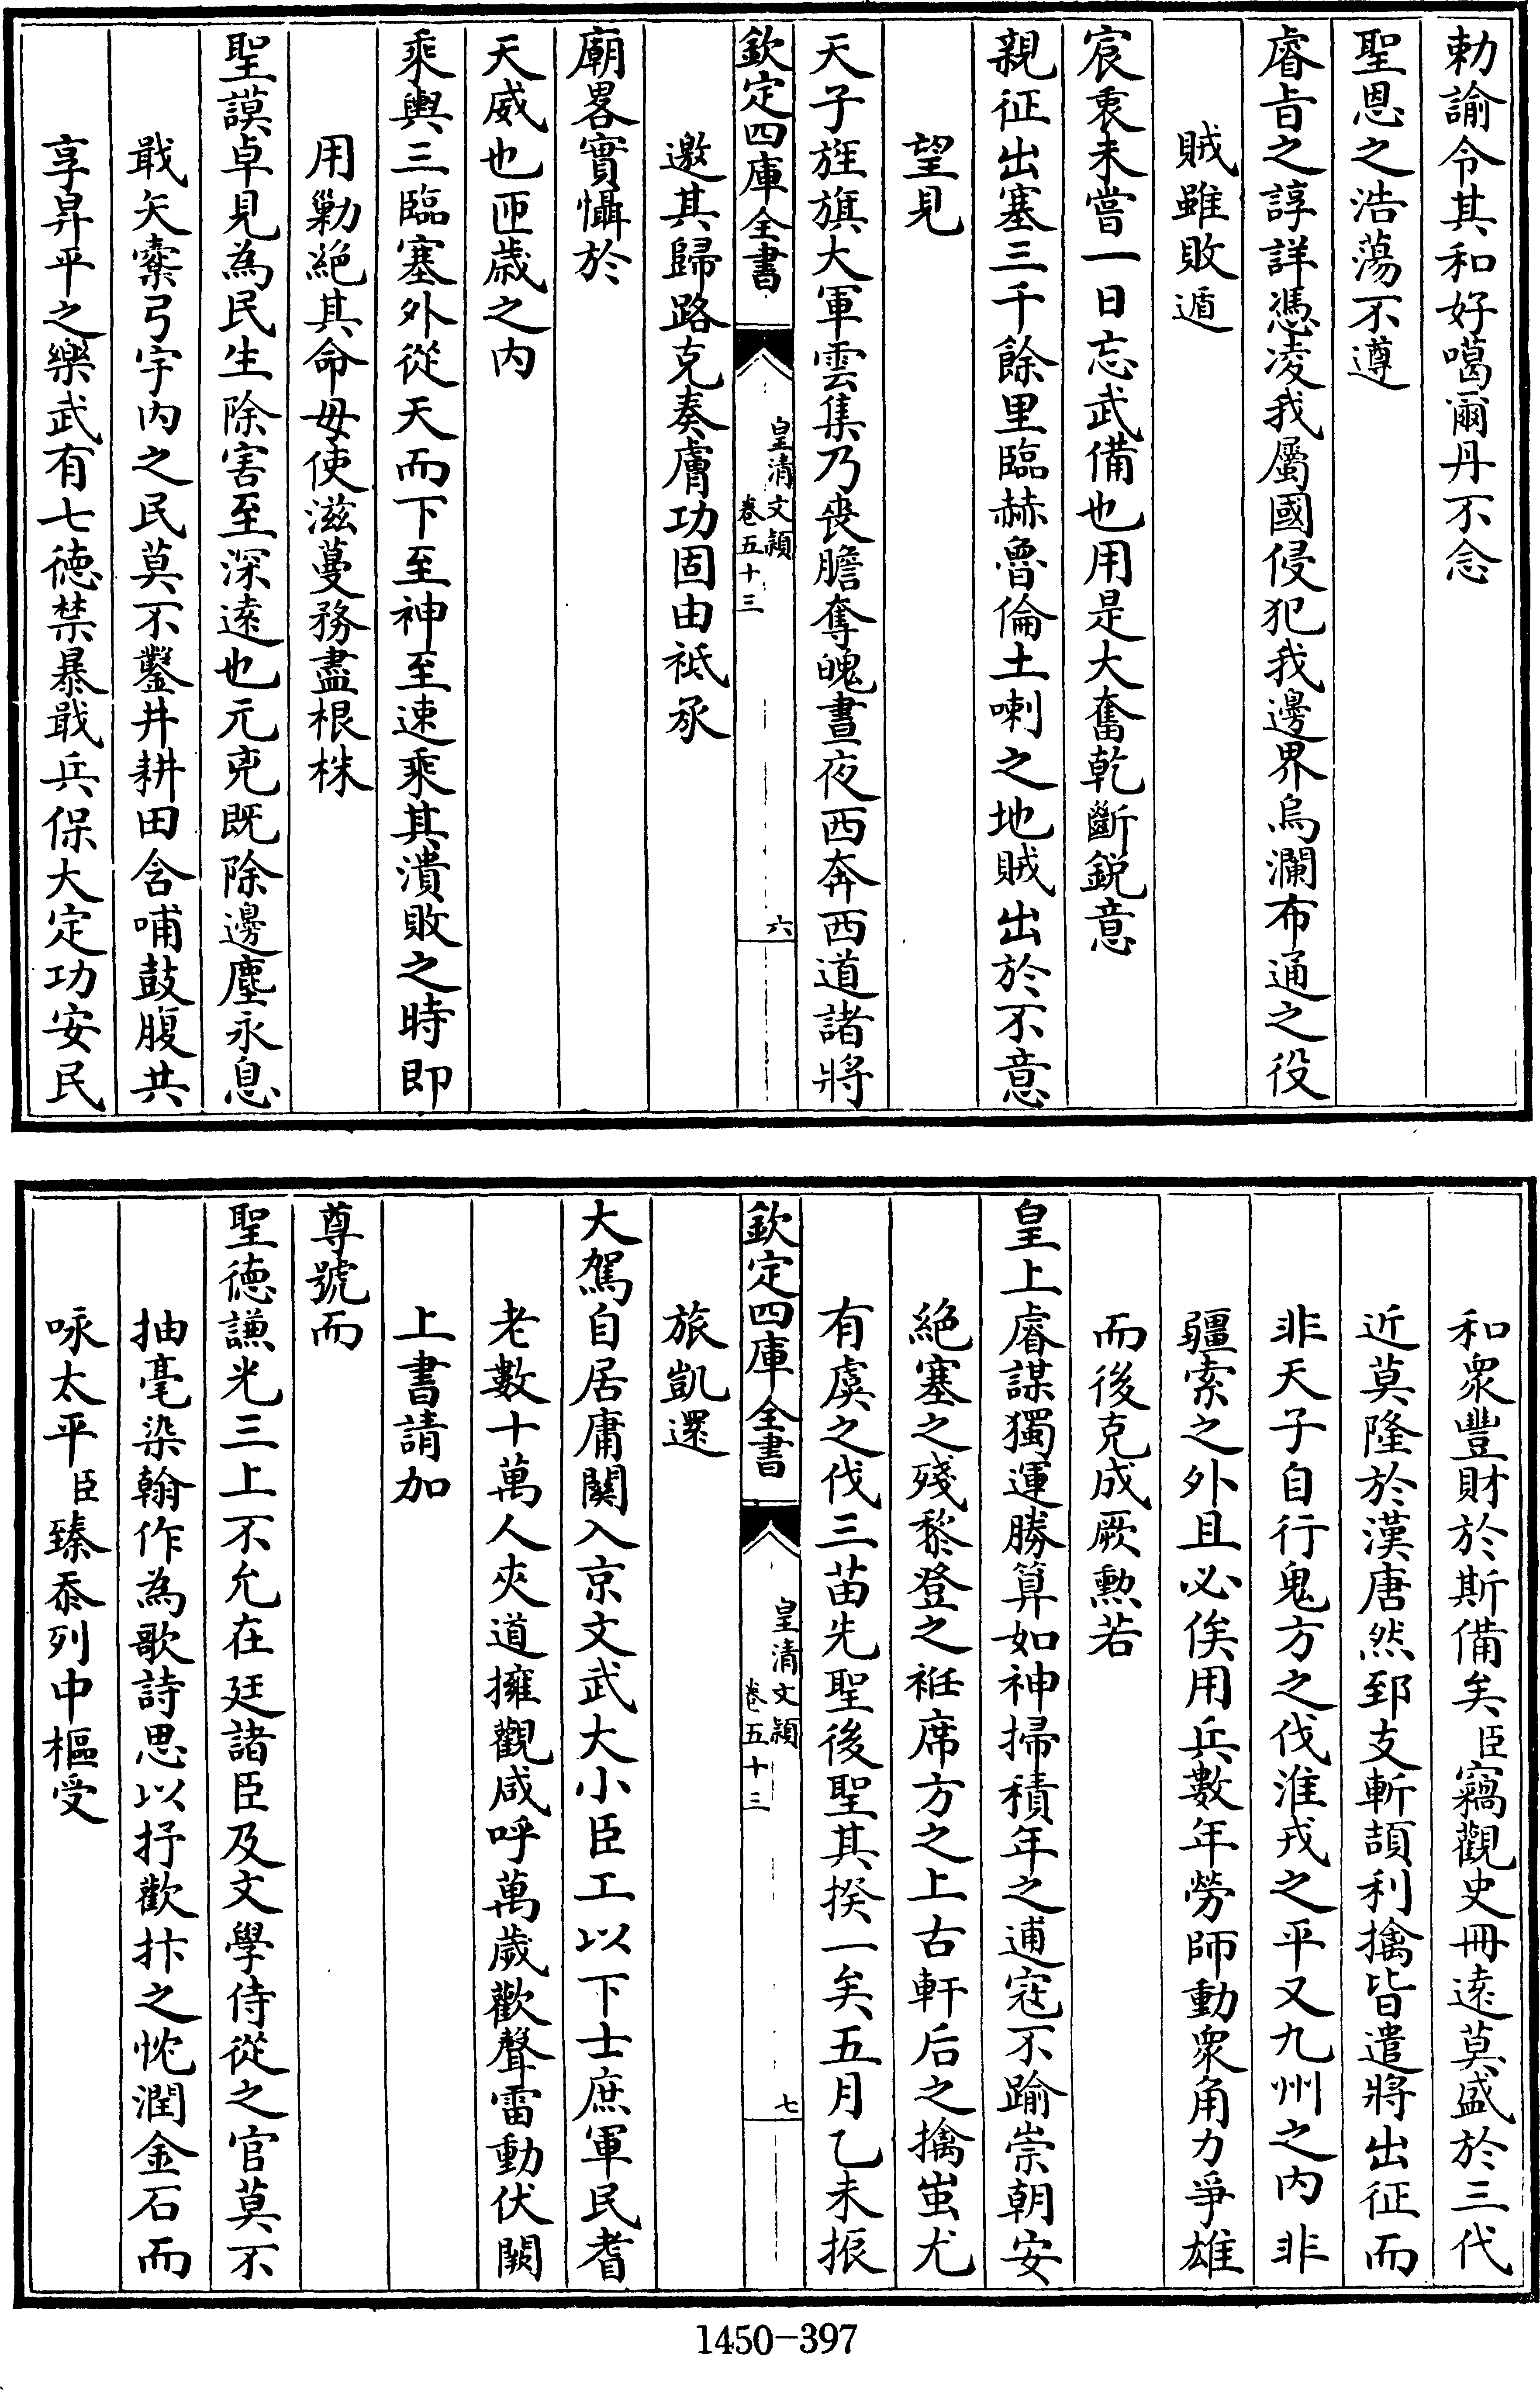 勅諭令其和好噶爾丹不念
聖恩之浩蕩不遵
睿㫖之諄詳憑凌我屬國侵犯我邊界烏瀾布通之役
賊雖敗遁
宸衷未嘗一日忘武備也用是大奮乾斷鋭意
親征出塞三千餘里臨赫魯倫土喇之地賊出於不意
望見
天子旌旗大軍雲集乃喪膽奪魄晝夜西奔西道諸將
欽定四庫全書
皇清文頴
卷五十三
六
邀其歸路克奏膚功固由祗承
廟畧實懾於
天威也匝歲之内
乘輿三臨塞外從天而下至神至速乘其潰敗之時即
用勦絶其命毋使滋蔓務盡根株
聖謨卓見為民生除害至深逺也元兇既除邊塵永息
戢矢櫜弓宇内之民莫不鑿井耕田含哺鼓腹共
享昇平之樂武有七徳禁暴戢兵保大定功安民
和衆豐財於斯備矣臣竊觀史冊逺莫盛於三代
近莫隆於漢唐然郅支斬頡利擒皆遣將出征而
非天子自行鬼方之伐淮戎之平又九州之内非
疆索之外且必俟用兵數年勞師動衆角力爭雄
而後克成厥勲若
皇上睿謀獨運勝算如神掃積年之逋寇不踰崇朝安
絶塞之殘黎登之袵席方之上古軒后之擒蚩尤
有虞之伐三苗先聖後聖其揆一矣五月乙未振
欽定四庫全書
皇清文頴
卷五十三
七
旅凱還
大駕自居庸關入京文武大小臣工以下士庶軍民耆
老數十萬人夾道擁觀咸呼萬歲歡聲雷動伏闕
上書請加
尊號而
聖徳謙光三上不允在廷諸臣及文學侍從之官莫不
抽毫染翰作為歌詩思以抒歡抃之忱潤金石而
咏太平臣臻忝列中樞受
1450-397